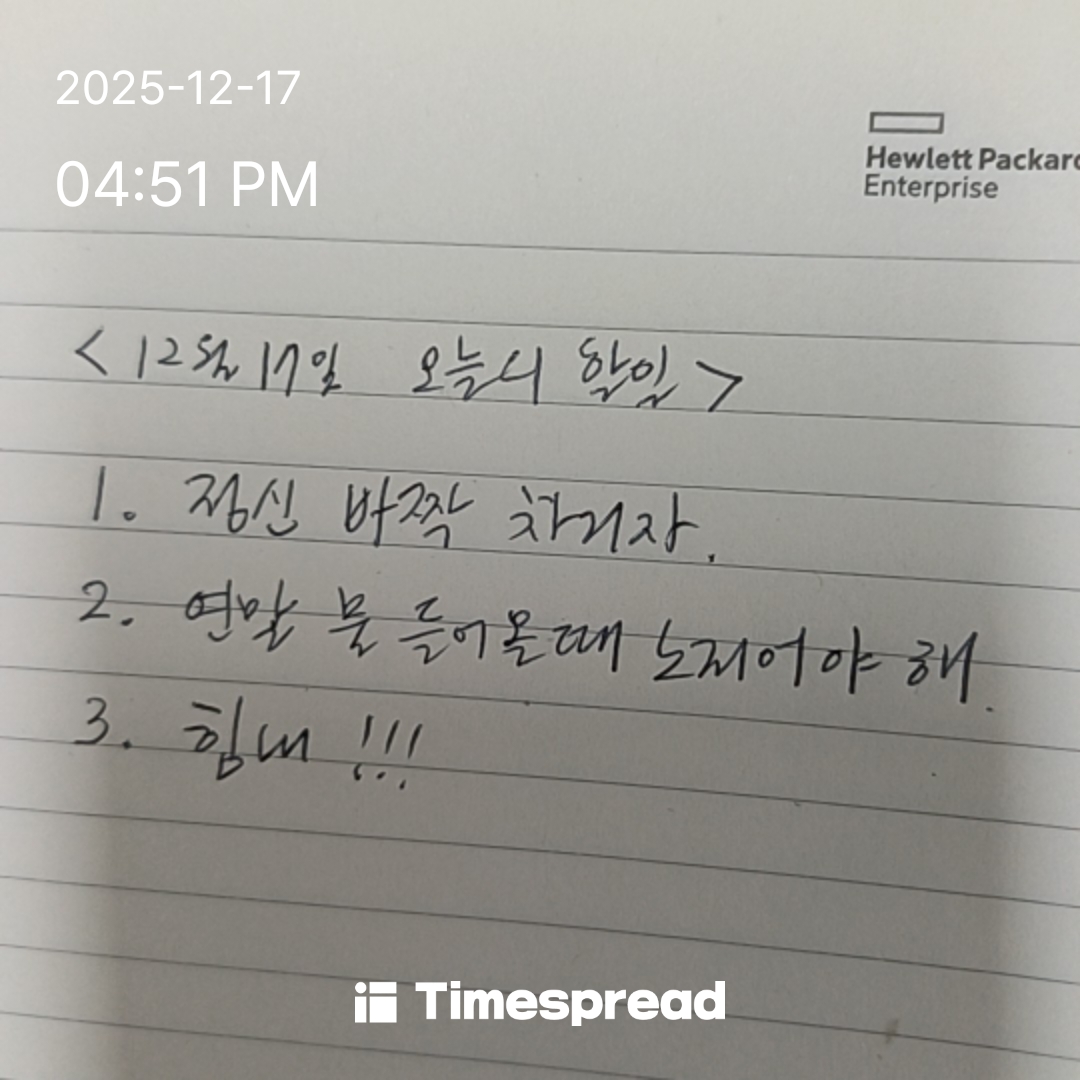 2025-12-17
04:51 PM
Hewlett Packard
Enterprise
< 12월 17일 오늘의 할일 >
1. 정신 바짝 차리자.
2. 연말 물 들어올때 노저어야 해.
3. 힘내 !!!
Timespread